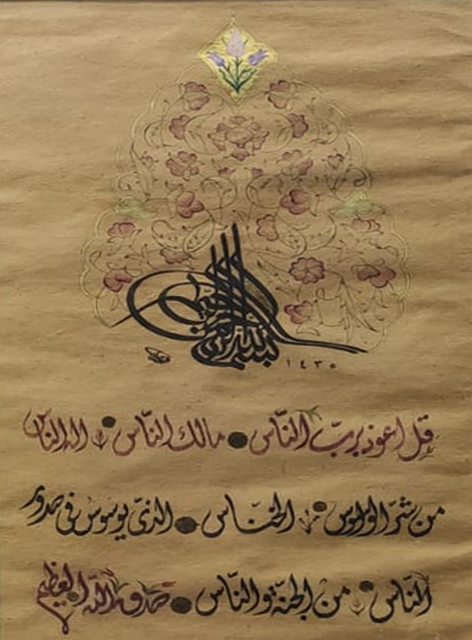 بسم الله الرحمن الرحيم
١٤٣٥
قل اعوذ بربّ النّاس مالك النّاس اله النّاس
من شرّ الوسواس الخنّاس الذى يوسوس فى صدور
النّاس من الجنّة والنّاس صدق الله العظيم